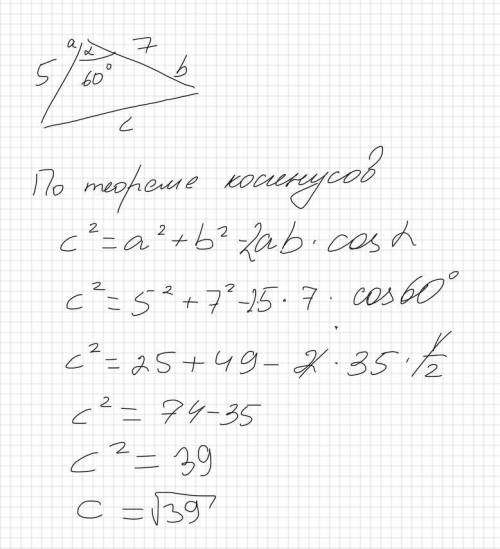 a α 7
5 60° b
c
По теореме косинусов
c² = a² + b² - 2ab · cos α
c² = 5² + 7² - 2·5 · 7 · cos 60°
c² = 25 + 49 - 2 · 35 · 1/2
c² = 74 - 35
c² = 39
c = √39